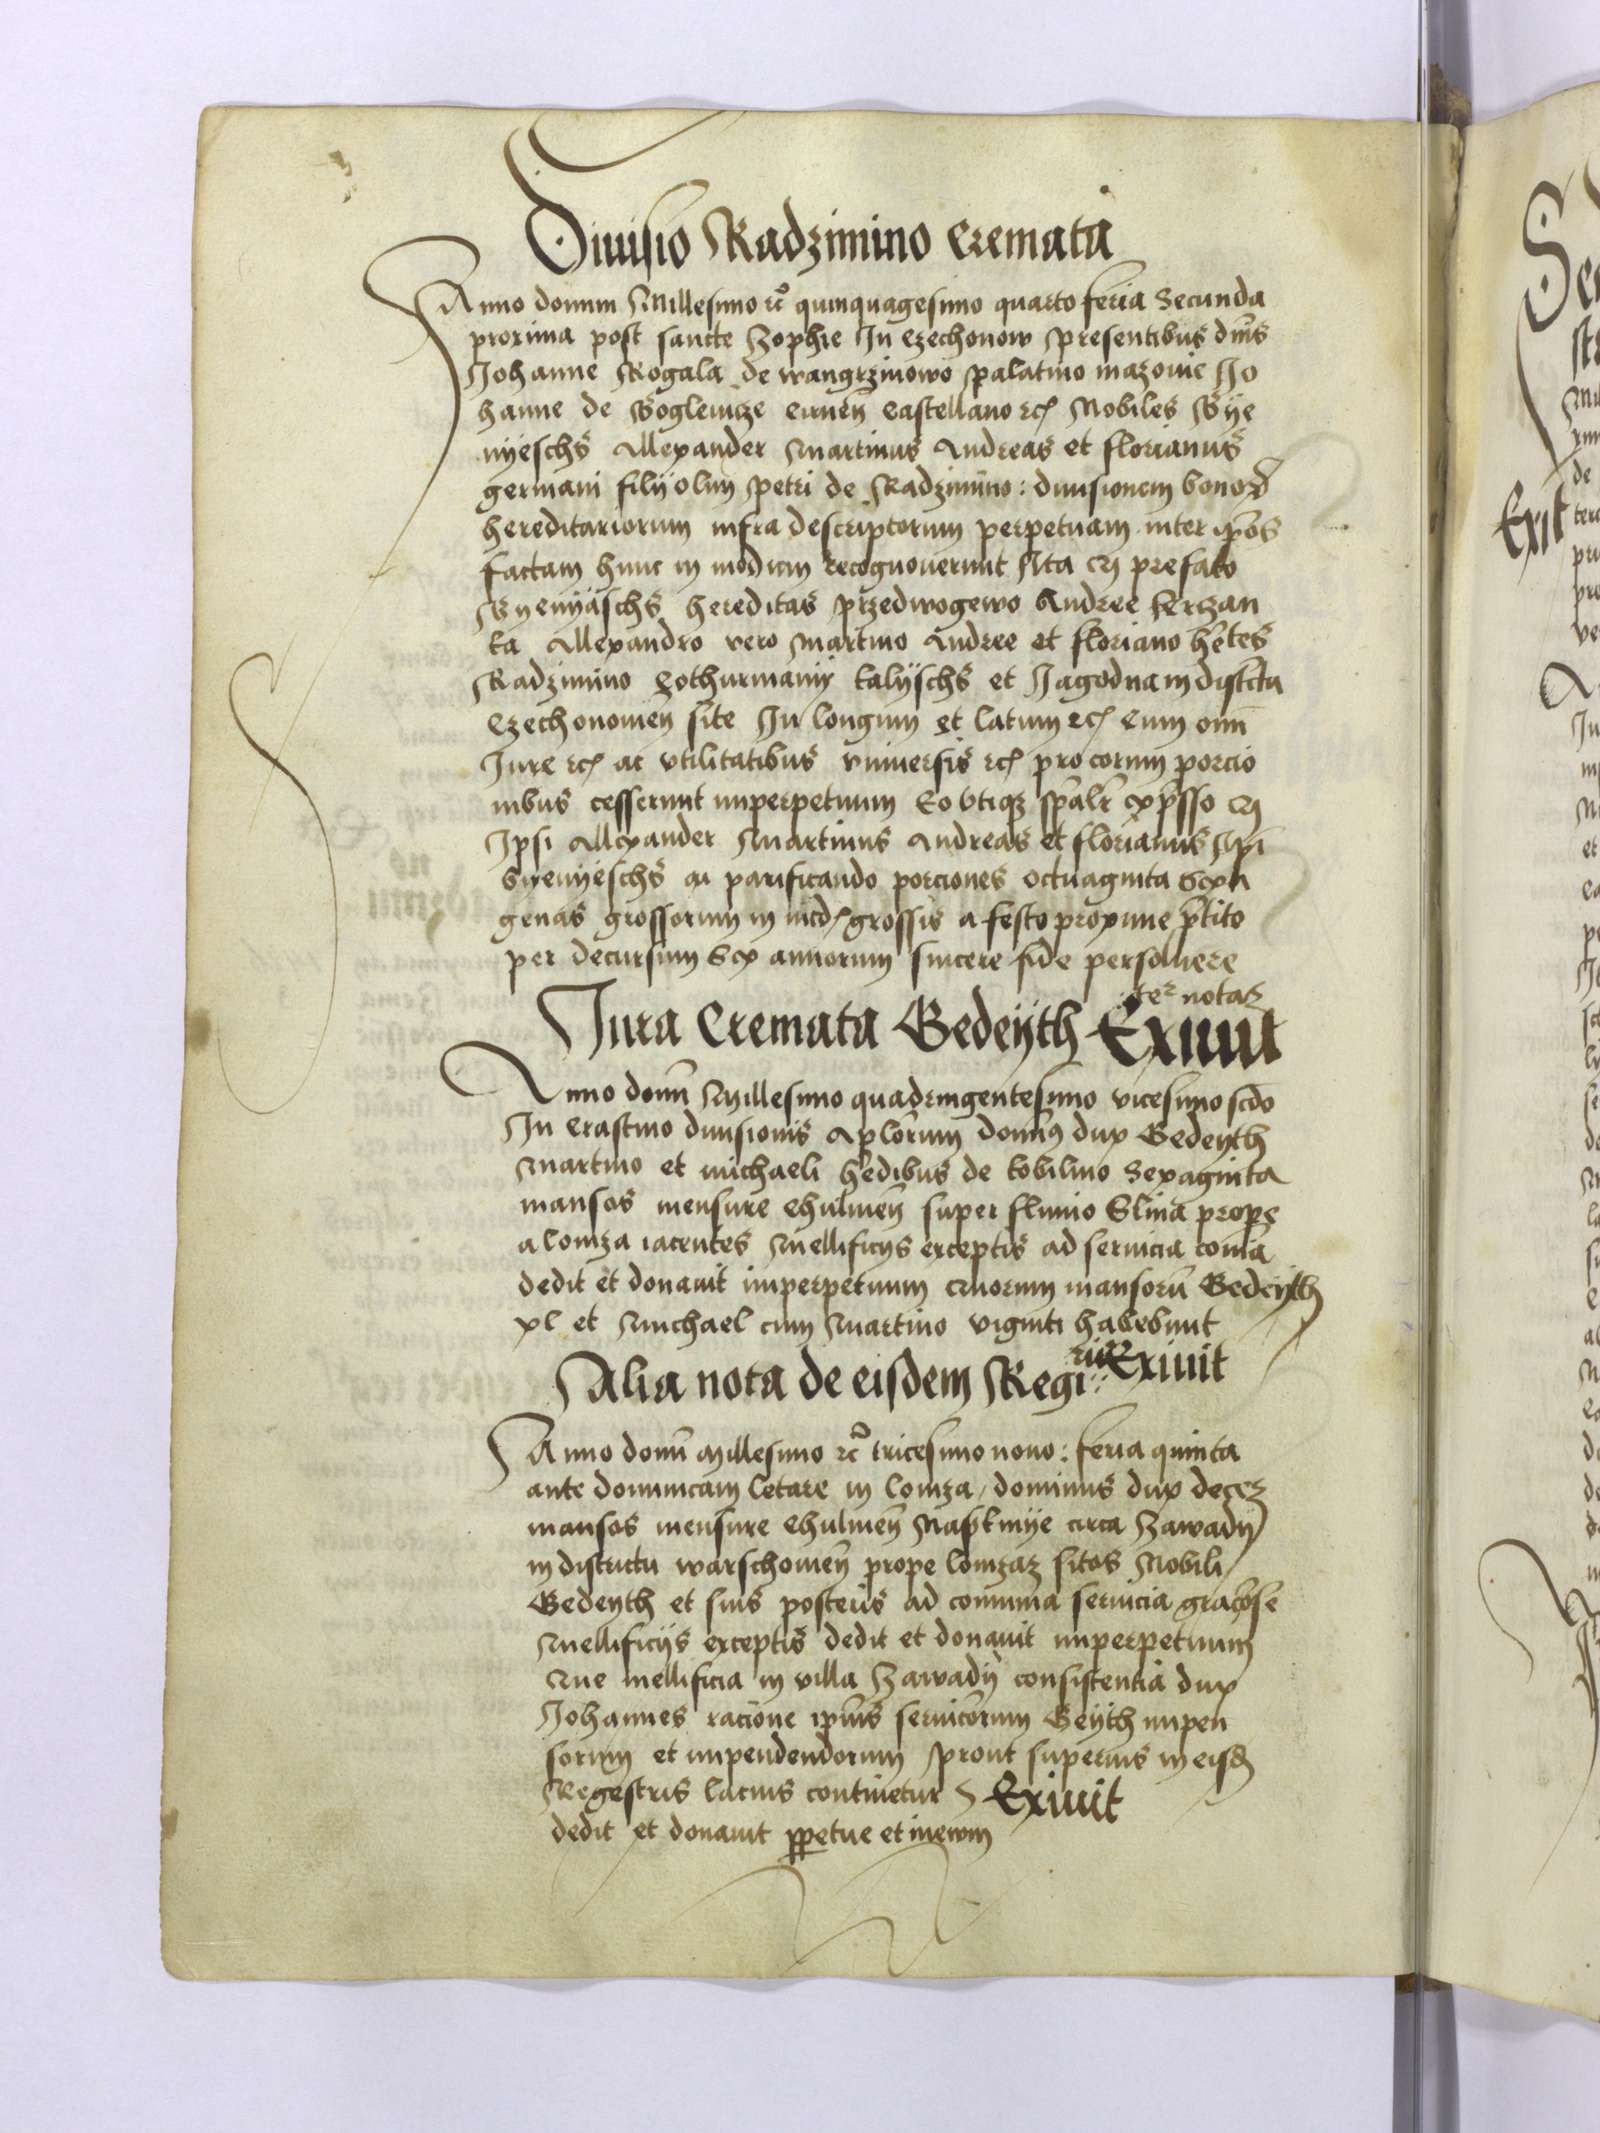 Diuisio Radzimino Cremata
Anno domini Millesimo rc° quinquagesimo quarto feria Secunda
proxima post sancte Zophie In Czechonow presentibus dnis
Johanne Rogala de wangrzinowo palatino mazouie Jo
hanne de Goglewicze Cirneñ Castellano rc Nobiles Bye
nyeschs Allexander Martinus Andreas et florianus
germani filij olim Petri de Radzimino : diuisionem bonor
hereditariorum infra descriptorum perpetuam inter ipos
factam hunc in modum recognouerunt Ita qz prefato
Byenyaschs hereditas przedwogewo Andree
ta Allexandro vero Martino Andree et floriano hrtes
Radzimino Gothurmaniy Calijschs et Jagodna in districtu
Czechonomeñ site In longum et latum rc Cum omi
Jure rc ac vtilitatibus vniuersis rc pro eorum porcio
nibus cesserunt imperpetuum Eo vtiqz spalr expsso qz
Ipsi Allexander Martinus Andreas et florianus Ipi
byenyeschs ai parificando porciones octuaginta Sexa
genas grossorum in medijs grossis a festo proxime prtito
per decursum Sex annorum sincere fide persoluere
ter notaz
Jura Cremata Gedeyth Exiuit
Anno domi Millesimo quadringentesimo vicesimo scdo
In Crastino diuisionis Aplorum domi9 dux Gedeyth
Martino et michaeli hredibus de kobilino Sexaginta
mansos mensure Chulmeñ super fluuio Slina prope
a lomza iacentes Mellificijs exceptis ad seruicia comia
dedit et donauit imperpetuum quorum mansorū Gedeyth
xl et Michael cum Martino viginti habebunt
rum Exiuit
Alia nota de eisdem Regi
Anno domi Millesimo rc° tricesimo nono : feria quinta
ante dominicam letare in lomza / dominus dux decez
mansos mensure Chulmeñ circa Zawady
in districtu warschouieñ prope lomzaz sitos Nobili
Gedeyth et suis posteris ad comunia seruicia graciose
Mellificijs exceptis dedit et donauit imperpetuum
Que mellificia in villa Zawady consistencia dux
Johannes racione ipius seruitorum Geyth inpen
sorum et inpendendorum prout superius in eisd
Regestris lacius continetur Exiuit
dedit et donauit ppetue et ineum